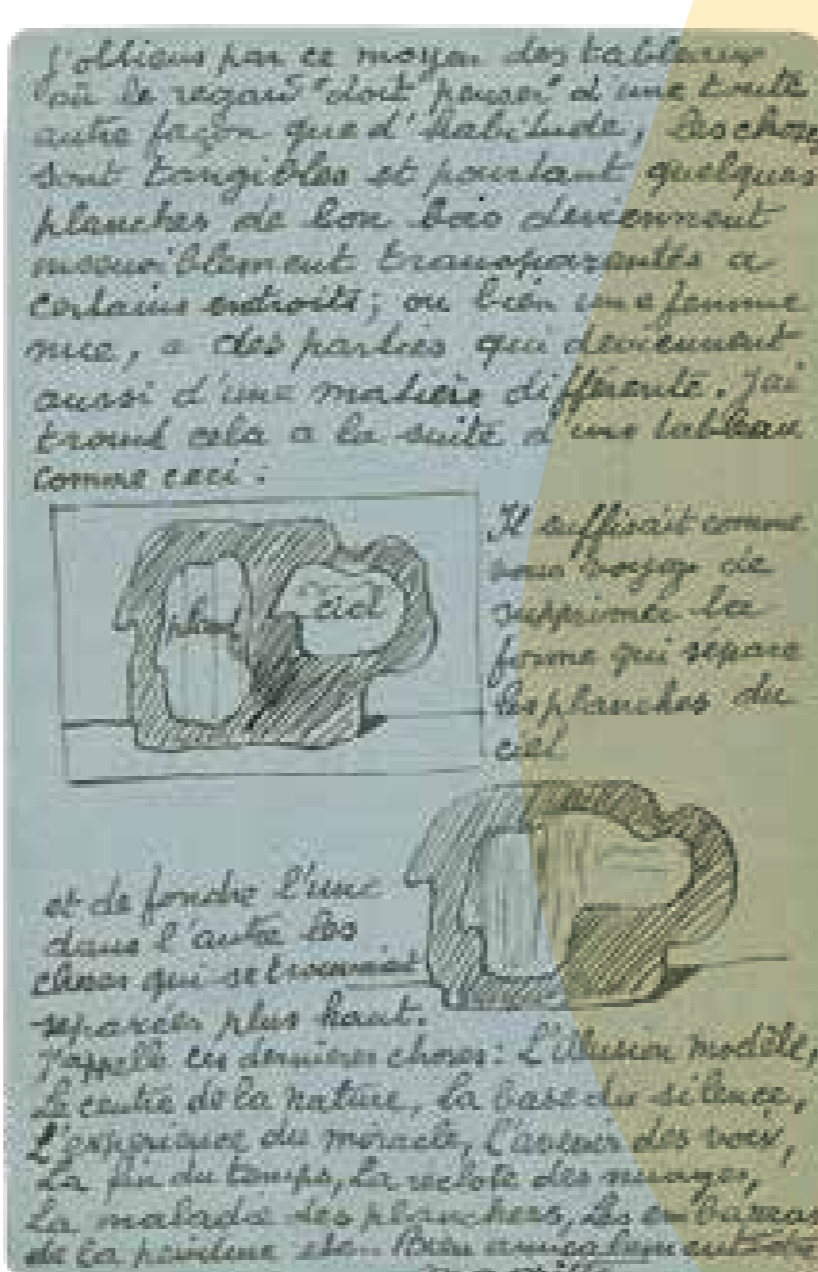 J'obtiens par ce moyen des tableaux
où le regard "doit penser" d'une toute
autre façon que d'habitude, les choses
sont tangibles et pourtant quelques
planches de bon bois deviennent
insensiblement transparentes a
certains endroits; ou bien une femme
nue, a des parties qui deviennent
aussi d'une matière différente. J'ai
trouvé cela a la suite d'une tableau
comme ceci :
Il suffisait comme
vous voyez de
supprimer la
forme qui sépare
les planches du
ciel
planch
ciel
et de fondre l'une
dans l'autre les
choses qui se trouvaient
separées plus haut.
J'appelle ces dernieres choses: L'illusion modèle,
Le centre de la nature, la base du silence,
L'experience du miracle, l'avenir des voix,
La fin du temps, La recolte des nuages,
La maladie des planchers, Les embarras
de la peinture etc. Bien amicalement votre